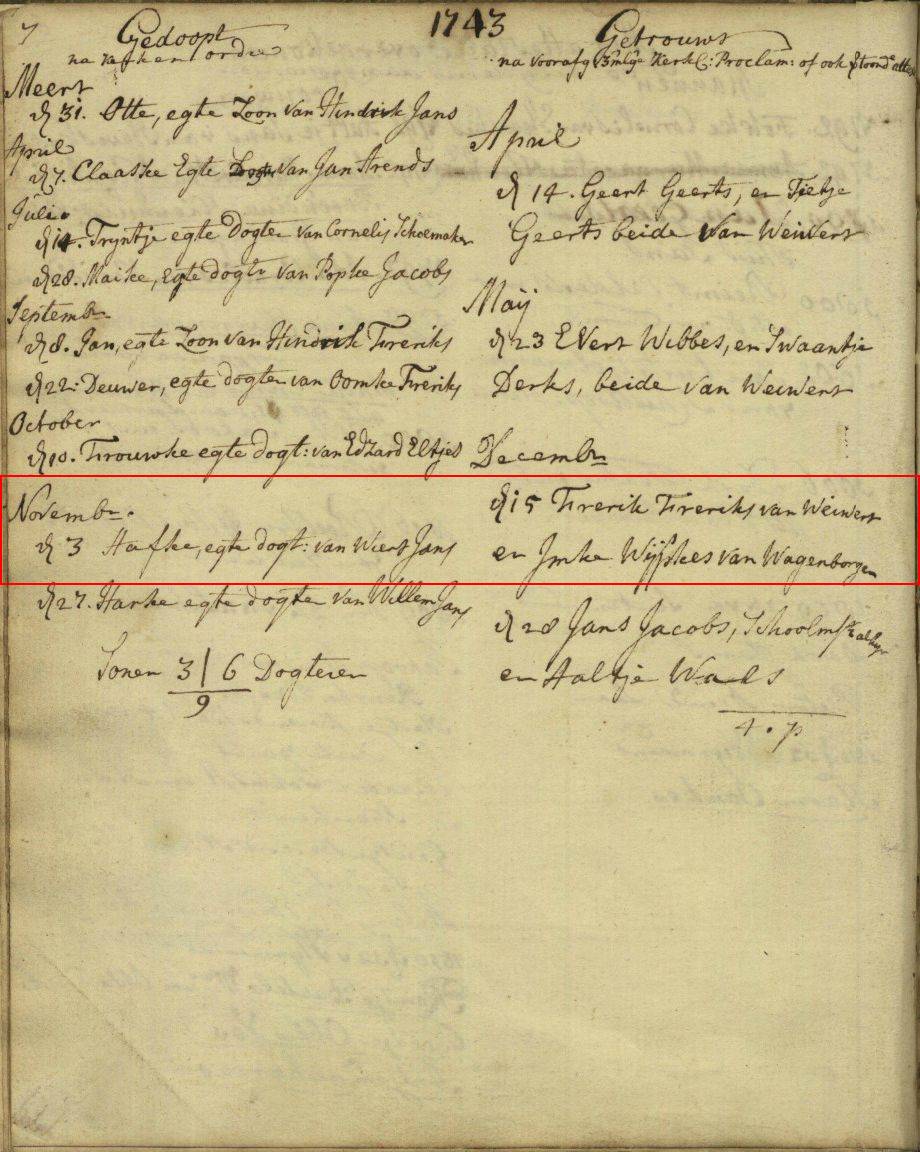 7
1743
Gedoopt
na kerken ordre
Meert
d 31. Otte, egte Zoon van Hindrik Jans
April
d 7. Claaske Egte van Jan Arends
Julio
d 14. Tryntje egte Dogter van Cornelis Schoemaker
d 28. Maike, Egte dogtr van Popke Jacobs
Septembr.
d 8. Jan, egte Zoon van Hindrik Freriks
d 22: Deuwer, egte dogter van Oomke Freriks
October
d 10. Frouwke egte dogt: van Edzard Eltjes
Novembr.
d 3 Hafke, egte dogt: van Wiert Jans
d 27. Harke egte dogter van Willem Jans
Sonen 3 | 6 Dogteren
9
Getrouwt
na voorafg Kerkl: Proclam: of ook
April
d 14. Geert Geerts, en Tietje
Geerts beide van Weiwert
Maij
d 23 Evert Wibbes, en Swaantje
Derks, beide van Weiwert
Decembr.
d 15 Frerik Freriks van Weiwert
en Imke Wijpkes van Wagenborgen
d 28 Jans Jacobs, Schoolmstr alhyr
en Aaltje Waals
4. p